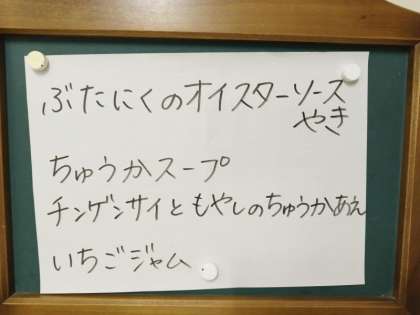 ぶたにくのオイスターソース
やき
ちゅうかスープ
チンゲンサイともやしのちゅうかあえ
いちごジャム